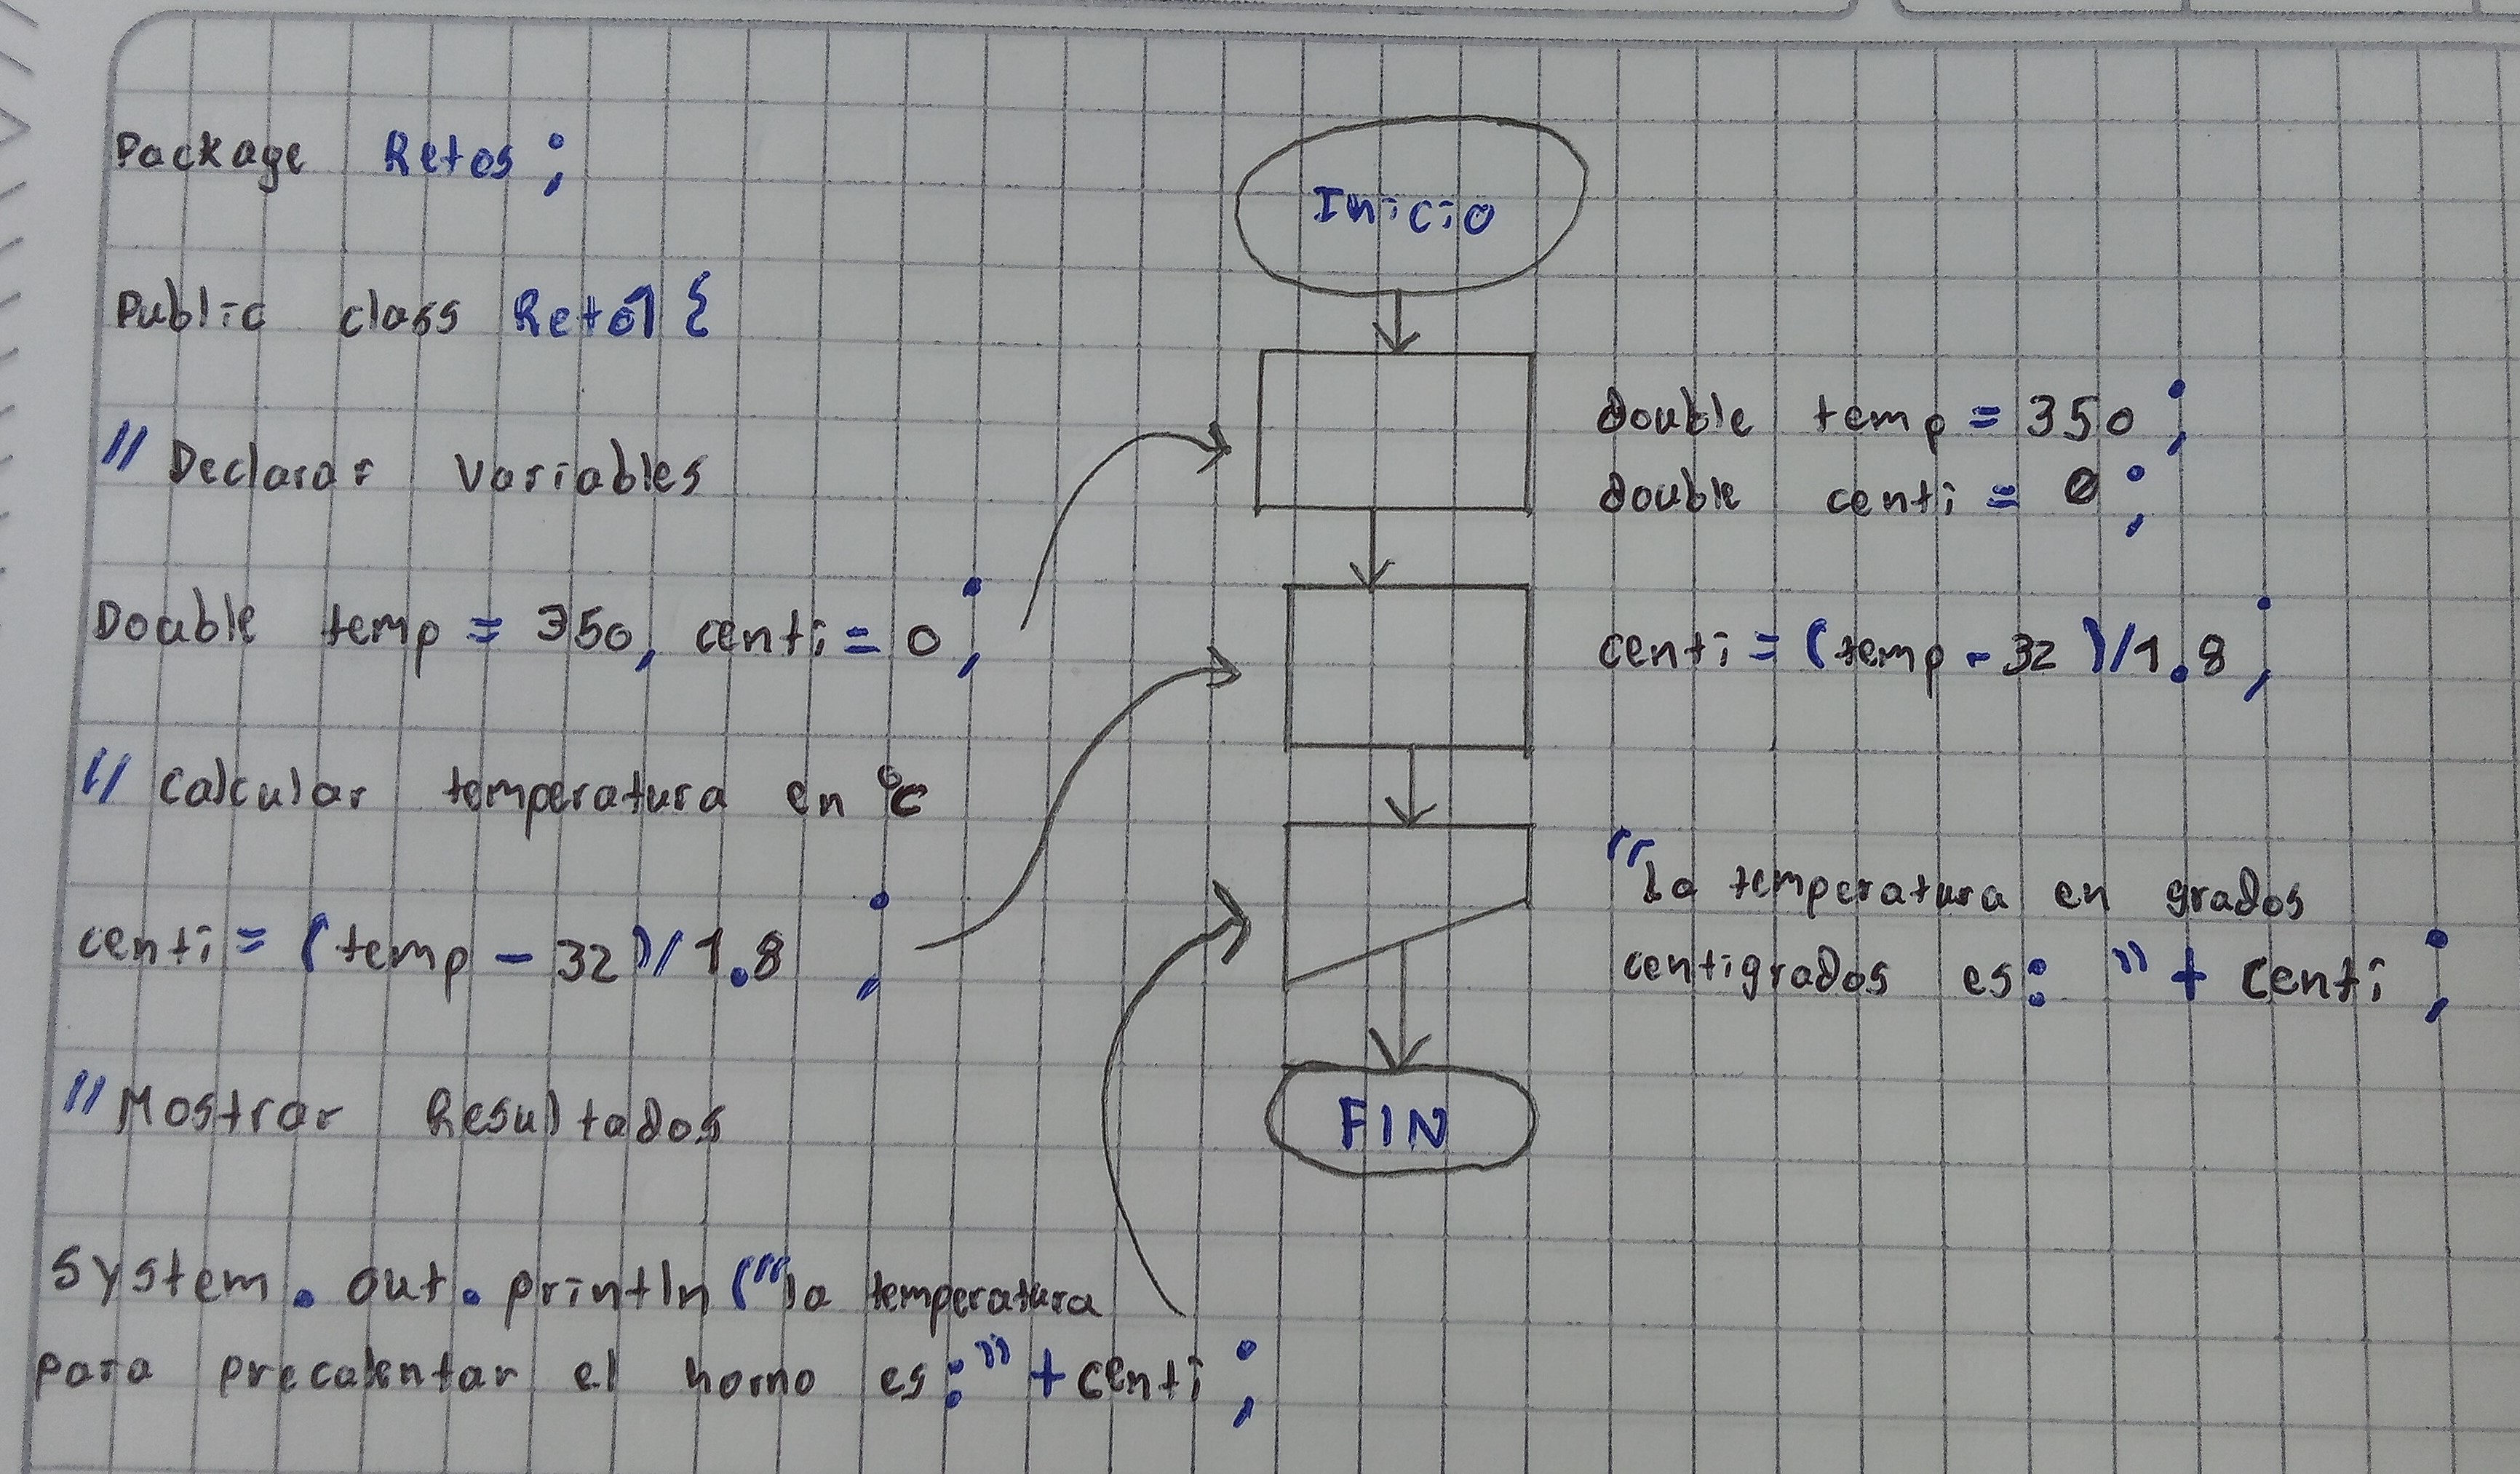 Package Retos;
Public class Reto1 {
// Declarar variables
Double temp = 350, centi = 0;
// Calcular temperatura en °C
centi = (temp - 32)/1.8;
// Mostrar Resultados
System.out.println("la temperatura
para precalentar el horno es:" + centi;
Inicio
double temp = 350;
double centi = 0;
centi = (temp - 32)/1.8;
"la temperatura en grados
centigrados es: " + centi;
FIN